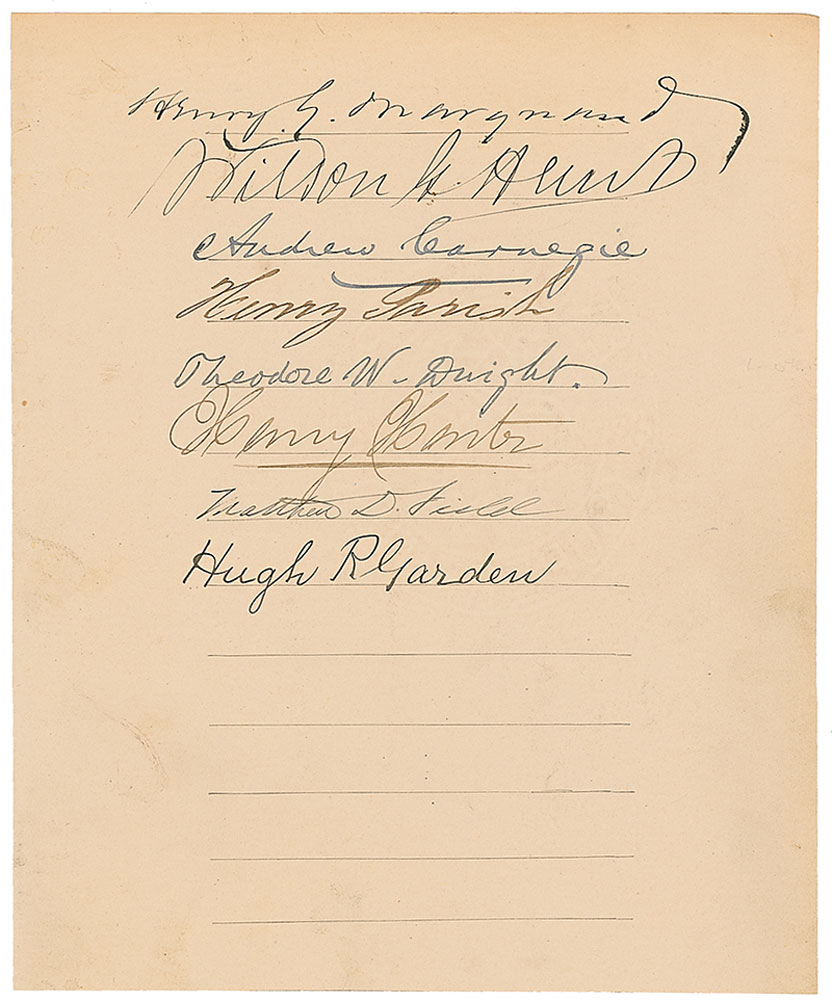 Henry G. Marquand
Wilson G. Hunt
Andrew Carnegie
Henry Parish
Theodore W. Dwight.
Harry
Matthew D. Field
Hugh R Garden